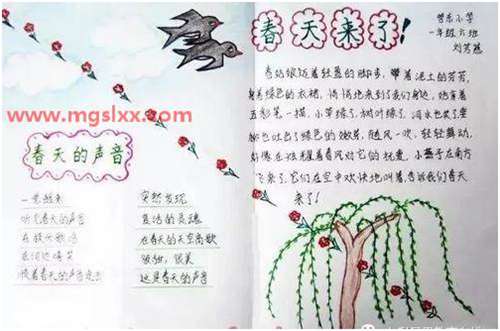 春天来了!
小学
一年级六班
www.mgslxx.com
春天的声音
一觉醒来
听见春天的声音
在放歌唱
在河边笑
着春天的声音走去
突然发现
复活的灵魂
在春天的天空高歌
很美
这是春天的声音
春姑娘迈着轻盈的脚步,带着泥土的芳芳,
着绿色的衣裙,悄悄地来到了我们身边,她拿着
五彩笔一描,小草绿了,树叶绿了,河水也笑了
也吐出了绿色的嫩芽,随风一吹,轻轻舞动,
好像在欢迎着春风对它的抚爱,小燕子在南方
飞来了,它们在空中欢快地叫着,告诉我们春天
来了!